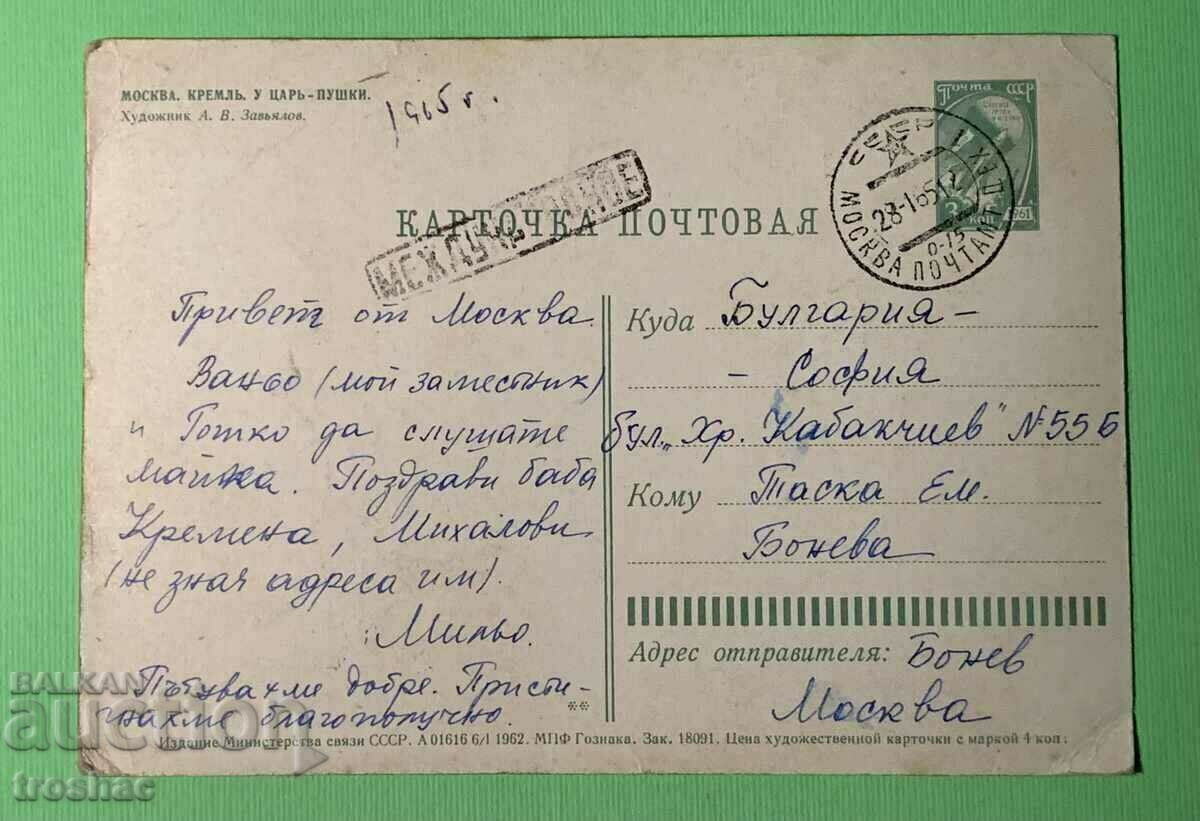 МОСКВА. КРЕМЛЬ. У ЦАРЬ-ПУШКИ.
Художник А. В. Завьялов.
1965 г.
Почта СССР
1961
МОСКВА ПОЧТАМТ
28-1 65
МЕЖДУНАРОДНОЕ
КАРТОЧКА ПОЧТОВАЯ
Привет от Москва.
Ваньо (мой заместник)
и Гошко да слушате
майка. Поздрави баба
Кремена, Михалови
(не зная адреса им).
Мильо.
Пътувахме добре. Присти-
гнахме благополучно.
Куда Булгария -
- София
бул. „Хр. Кабакчиев" № 55 Б
Кому Таска Ем.
Бонева
Адрес отправителя: Бонев
Москва
**
Издание Министерства связи СССР. А 01616 6/I 1962. МПФ Гознака. Зак. 18091. Цена художественной карточки с маркой 4 коп.
BALKAN
auction
troshac